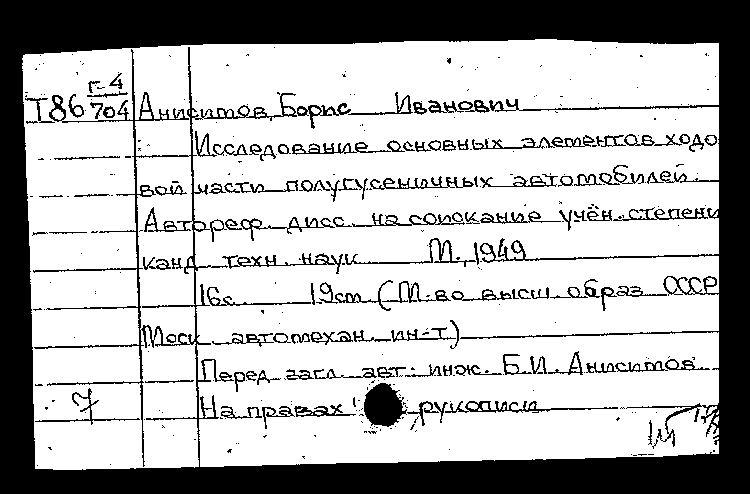 Г-4
Т86 704 Анисимов, Борис Иванович
Исследование основных элементов ходо
вой части полугусеничных автомобилей.
Автореф. дисс. на соискание учён. степени
канд. техн. наук М., 1949
16с. 19см (М-во высш. образ. СССР
Моск. автомехан. ин-т)
Перед загл. авт.: инж. Б.И. Анисимов
7 На правах рукописи